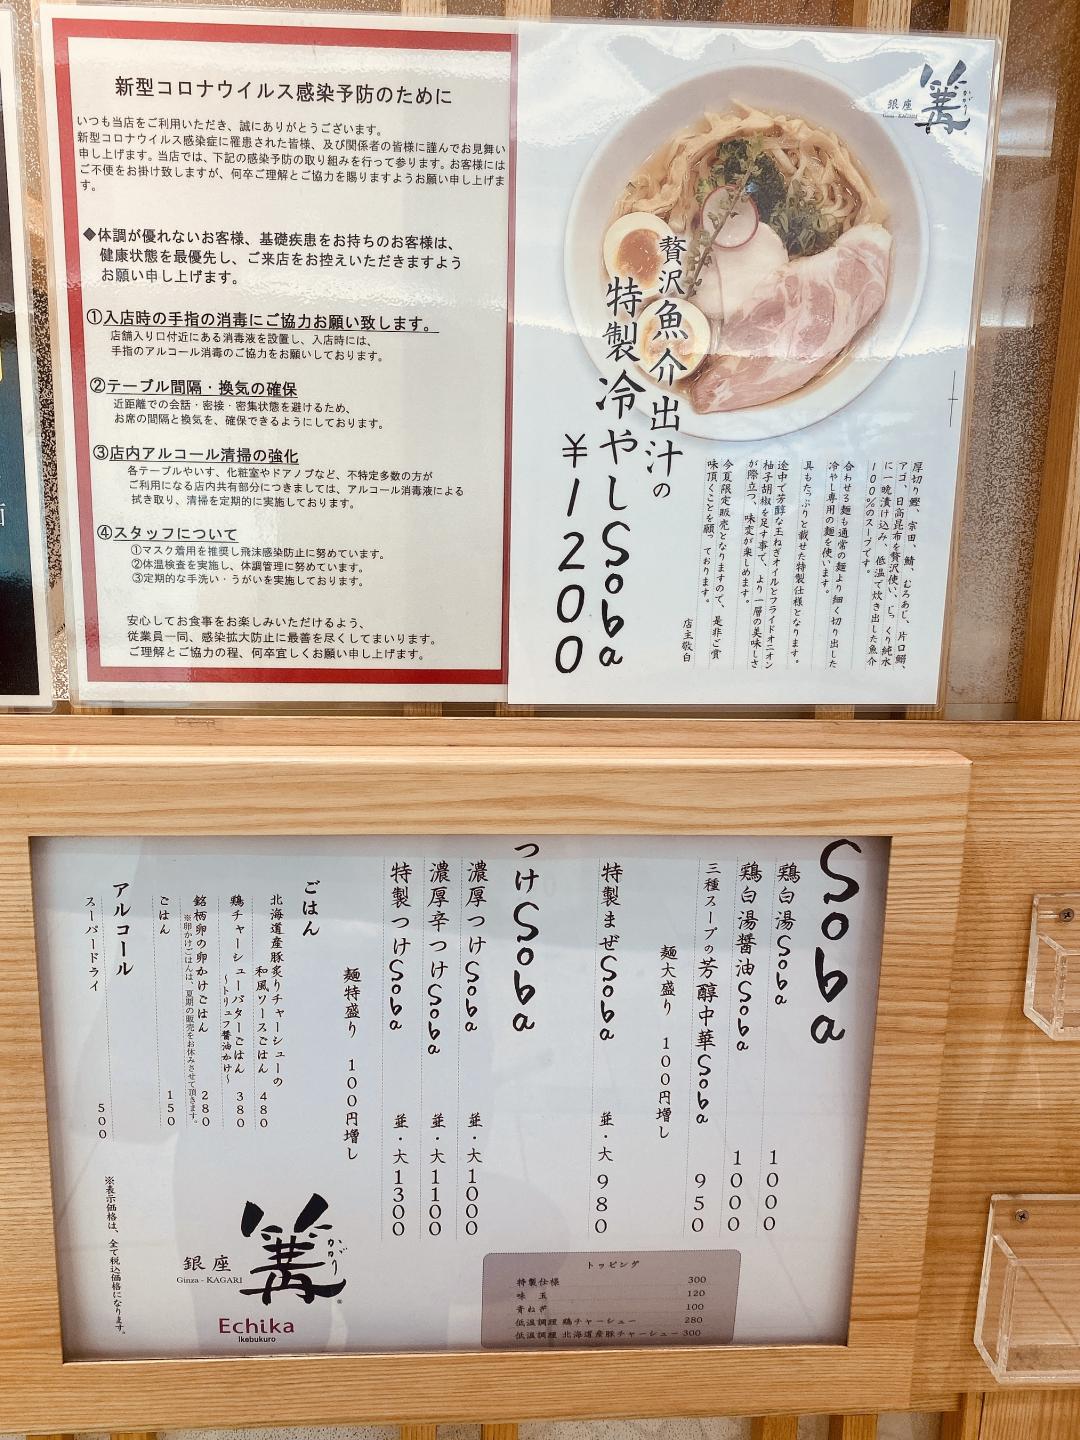 新型コロナウイルス感染予防のために
いつも当店をご利用いただき、誠にありがとうございます。
新型コロナウイルス感染症に罹患された皆様、及び関係者の皆様に謹んでお見舞い
申し上げます。当店では、下記の感染予防の取り組みを行って参ります。お客様には
ご不便をお掛け致しますが、何卒ご理解とご協力を賜りますようお願い申し上げま
す。
◆体調が優れないお客様、基礎疾患をお持ちのお客様は、
健康状態を最優先し、ご来店をお控えいただきますよう
お願い申し上げます。
①入店時の手指の消毒にご協力お願い致します。
店舗入り口付近にある消毒液を設置し、入店時には、
手指のアルコール消毒のご協力をお願いしております。
②テーブル間隔・換気の確保
近距離での会話・密接・密集状態を避けるため、
お席の間隔と換気を、確保できるようにしております。
③店内アルコール清掃の強化
各テーブルやいす、化粧室やドアノブなど、不特定多数の方が
ご利用になる店内共有部分につきましては、アルコール消毒液による
拭き取り、清掃を定期的に実施しております。
④スタッフについて
①マスク着用を推奨し飛沫感染防止に努めています。
②体温検査を実施し、体調管理に努めています。
③定期的な手洗い・うがいを実施しております。
安心してお食事をお楽しみいただけるよう、
従業員一同、感染拡大防止に最善を尽くしてまいります。
ご理解とご協力の程、何卒宜しくお願い申し上げます。
銀座
Ginza - KAGARI
篝
かがり
贅沢魚介出汁の
特製冷やしSoba
￥1200
厚切り鰹、宗田、鯖、むろあじ、片口鰯、
アゴ、日高昆布を贅沢使い、じっくり純水
に一晩漬け込み、低温で炊き出した魚介
100％のスープです。
合わせる麺も通常の麺より細く切り出した
冷やし専用の麺を使います。
具もたっぷりと載せた特製仕様となります。
途中で芳醇な玉ねぎオイルとフライドオニオン
柚子胡椒を足す事で、より一層の美味しさ
が際立つ、味変が楽しめます。
今夏限定販売となりますので、是非ご賞
味頂くことを願っております。
店主敬白
Soba
鶏白湯Soba 1000
鶏白湯醤油Soba 1000
三種スープの芳醇中華Soba 950
麺大盛り 100円増し
特製まぜSoba 並・大 980
つけSoba
濃厚つけSoba 並・大 1000
濃厚辛つけSoba 並・大 1100
特製つけSoba 並・大 1300
麺特盛り 100円増し
ごはん
北海道産豚炙りチャーシューの
和風ソースごはん 480
鶏チャーシューバターごはん 380
～トリュフ醤油かけ～
銘柄卵の卵かけごはん 280
※卵かけごはんは、夏期の販売をお休みさせて頂きます。
ごはん 150
アルコール
スーパードライ 500
※表示価格は、全て税込価格になります。
銀座
Ginza - KAGARI
篝
かがり
Echika
Ikebukuro
トッピング
特製仕様 300
味 玉 120
青ねぎ 100
低温調理 鶏チャーシュー 280
低温調理 北海道産豚チャーシュー 300